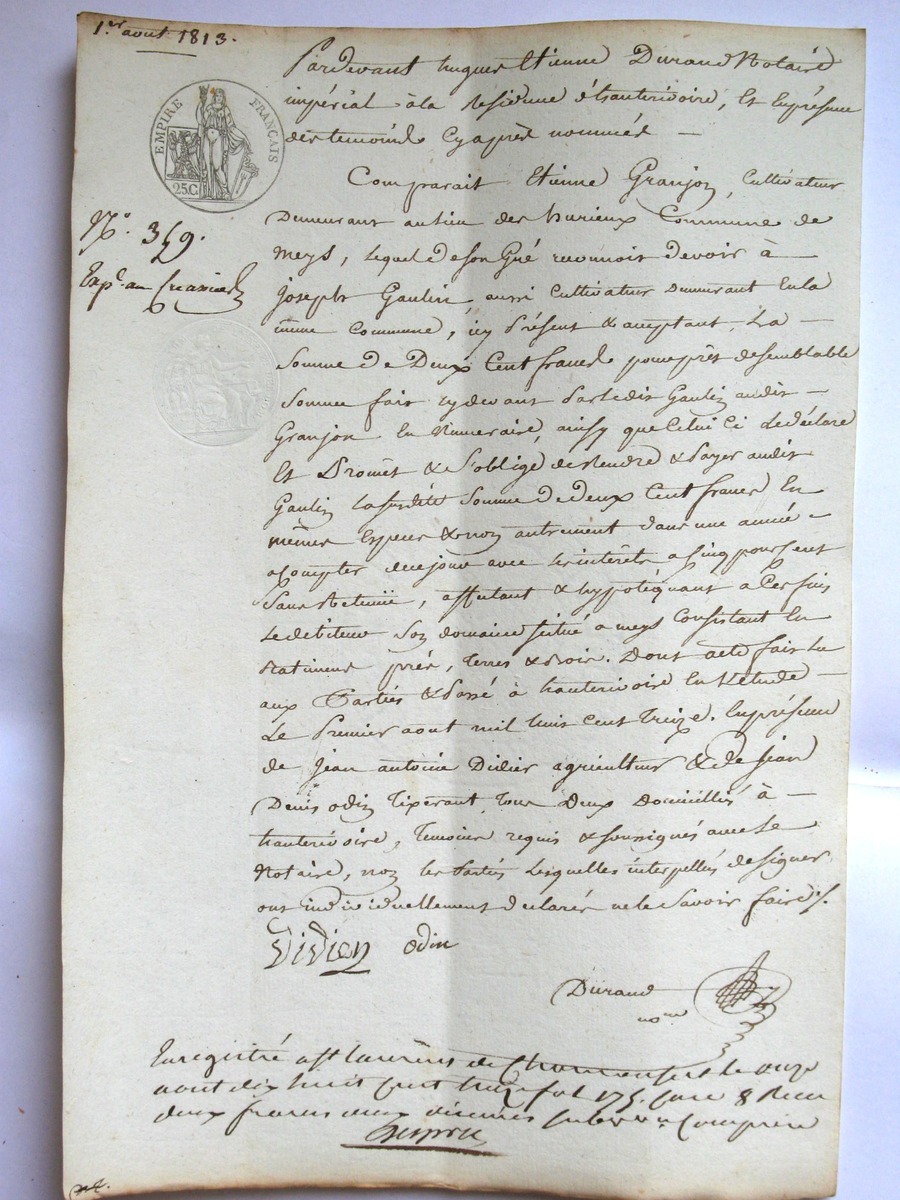 1.er aout 1813.
EMPIRE FRANÇAIS
25C
N.o 349.
Exp.e au
Pardevant hugues Etienne Durand Notaire
impérial à la Residence d'hauterivoire, Et En présence
des temoins Cy après nommés —
Comparait Etienne Granjon, Cultivateur
Demeurant au lieu des hurieux Commune de
Meys, lequel de son Gré reconnoit devoir à —
Joseph Gaulin, aussi Cultivateur demeurant En la
même Commune, icy Présent & acceptant, La —
Somme de Deux Cent francs pour prêt de semblable
Somme fait cy devant Par ledit Gaulin audit —
Granjon En Numeraire, ainsy que Celui Ci Le déclare
Et Promet & s'oblige de Rendre & Payer audit
Gaulin la susditte Somme de deux Cent francs En
mêmes Especes & non autrement dans une année —
a Compter de ce jour avec les interêts a Cinq pour Cent
Sans Retenüe, affectant & hyppotéquant a Ces fins
Le débiteur Son domaine situé a meys Consistant En
Batiments prés, terres & bois. Dont acte fait Lu
aux Parties & Passé à hauterivoire En L'etude —
Le Premier aout mil huit Cent treize. En présence
de Jean antoine Didier agriculteur & de Jean
Denis odin tixerant tous deux domiciliés à —
hauterivoire, temoins requis & soussignés avec Le
Notaire, non les Parties Lesquelles interpellés de signer
ont individuellement déclarés ne le Savoir faire ./.
Didier odin
Durand
no.re
Enregistré a St Laurens de Chamousset le onze
aout dix huit cent treize fol. 175. Case 8 Recu
deux francs deux décimes subv.on Comprise